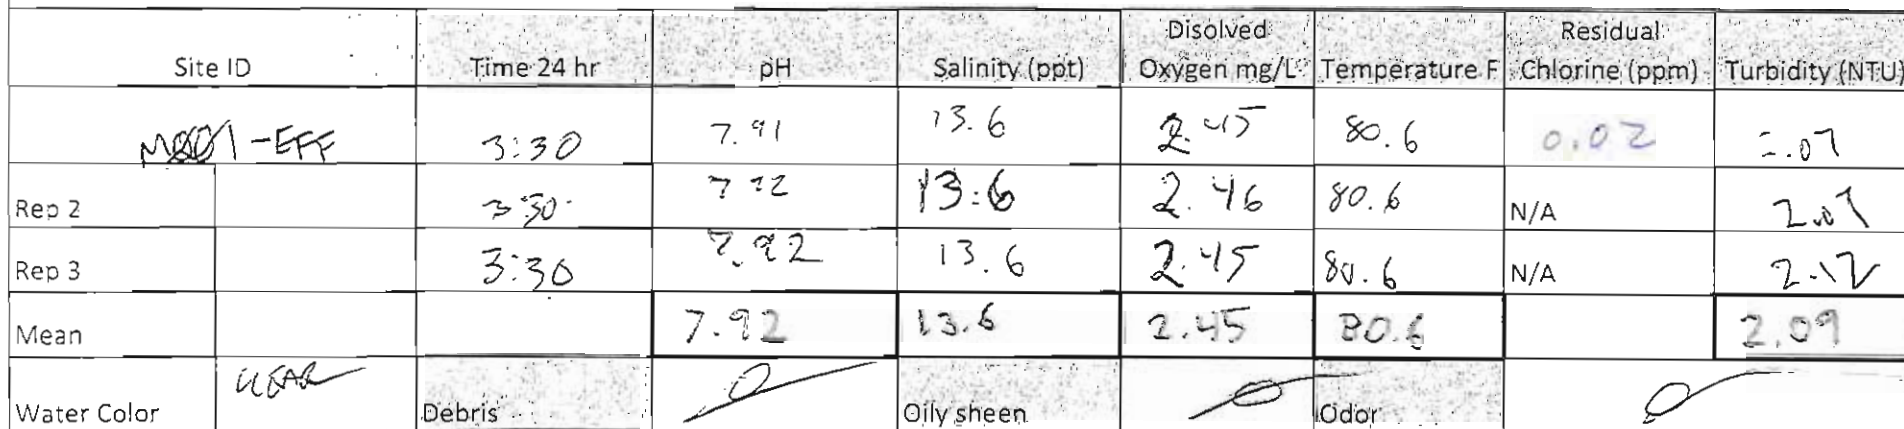 Site ID Time 24 hr pH Salinity (ppt) Disolved Oxygen mg/L Temperature F Residual Chlorine (ppm) Turbidity (NTU)
M001-EFF 3:30 7.91 13.6 2.45 80.6 0.02 2.07
Rep 2 3:30 7.92 13.6 2.46 80.6 N/A 2.07
Rep 3 3:30 7.92 13.6 2.45 80.6 N/A 2.12
Mean 7.92 13.6 2.45 80.6 2.09
Water Color CLEAR Debris Oily sheen Odor